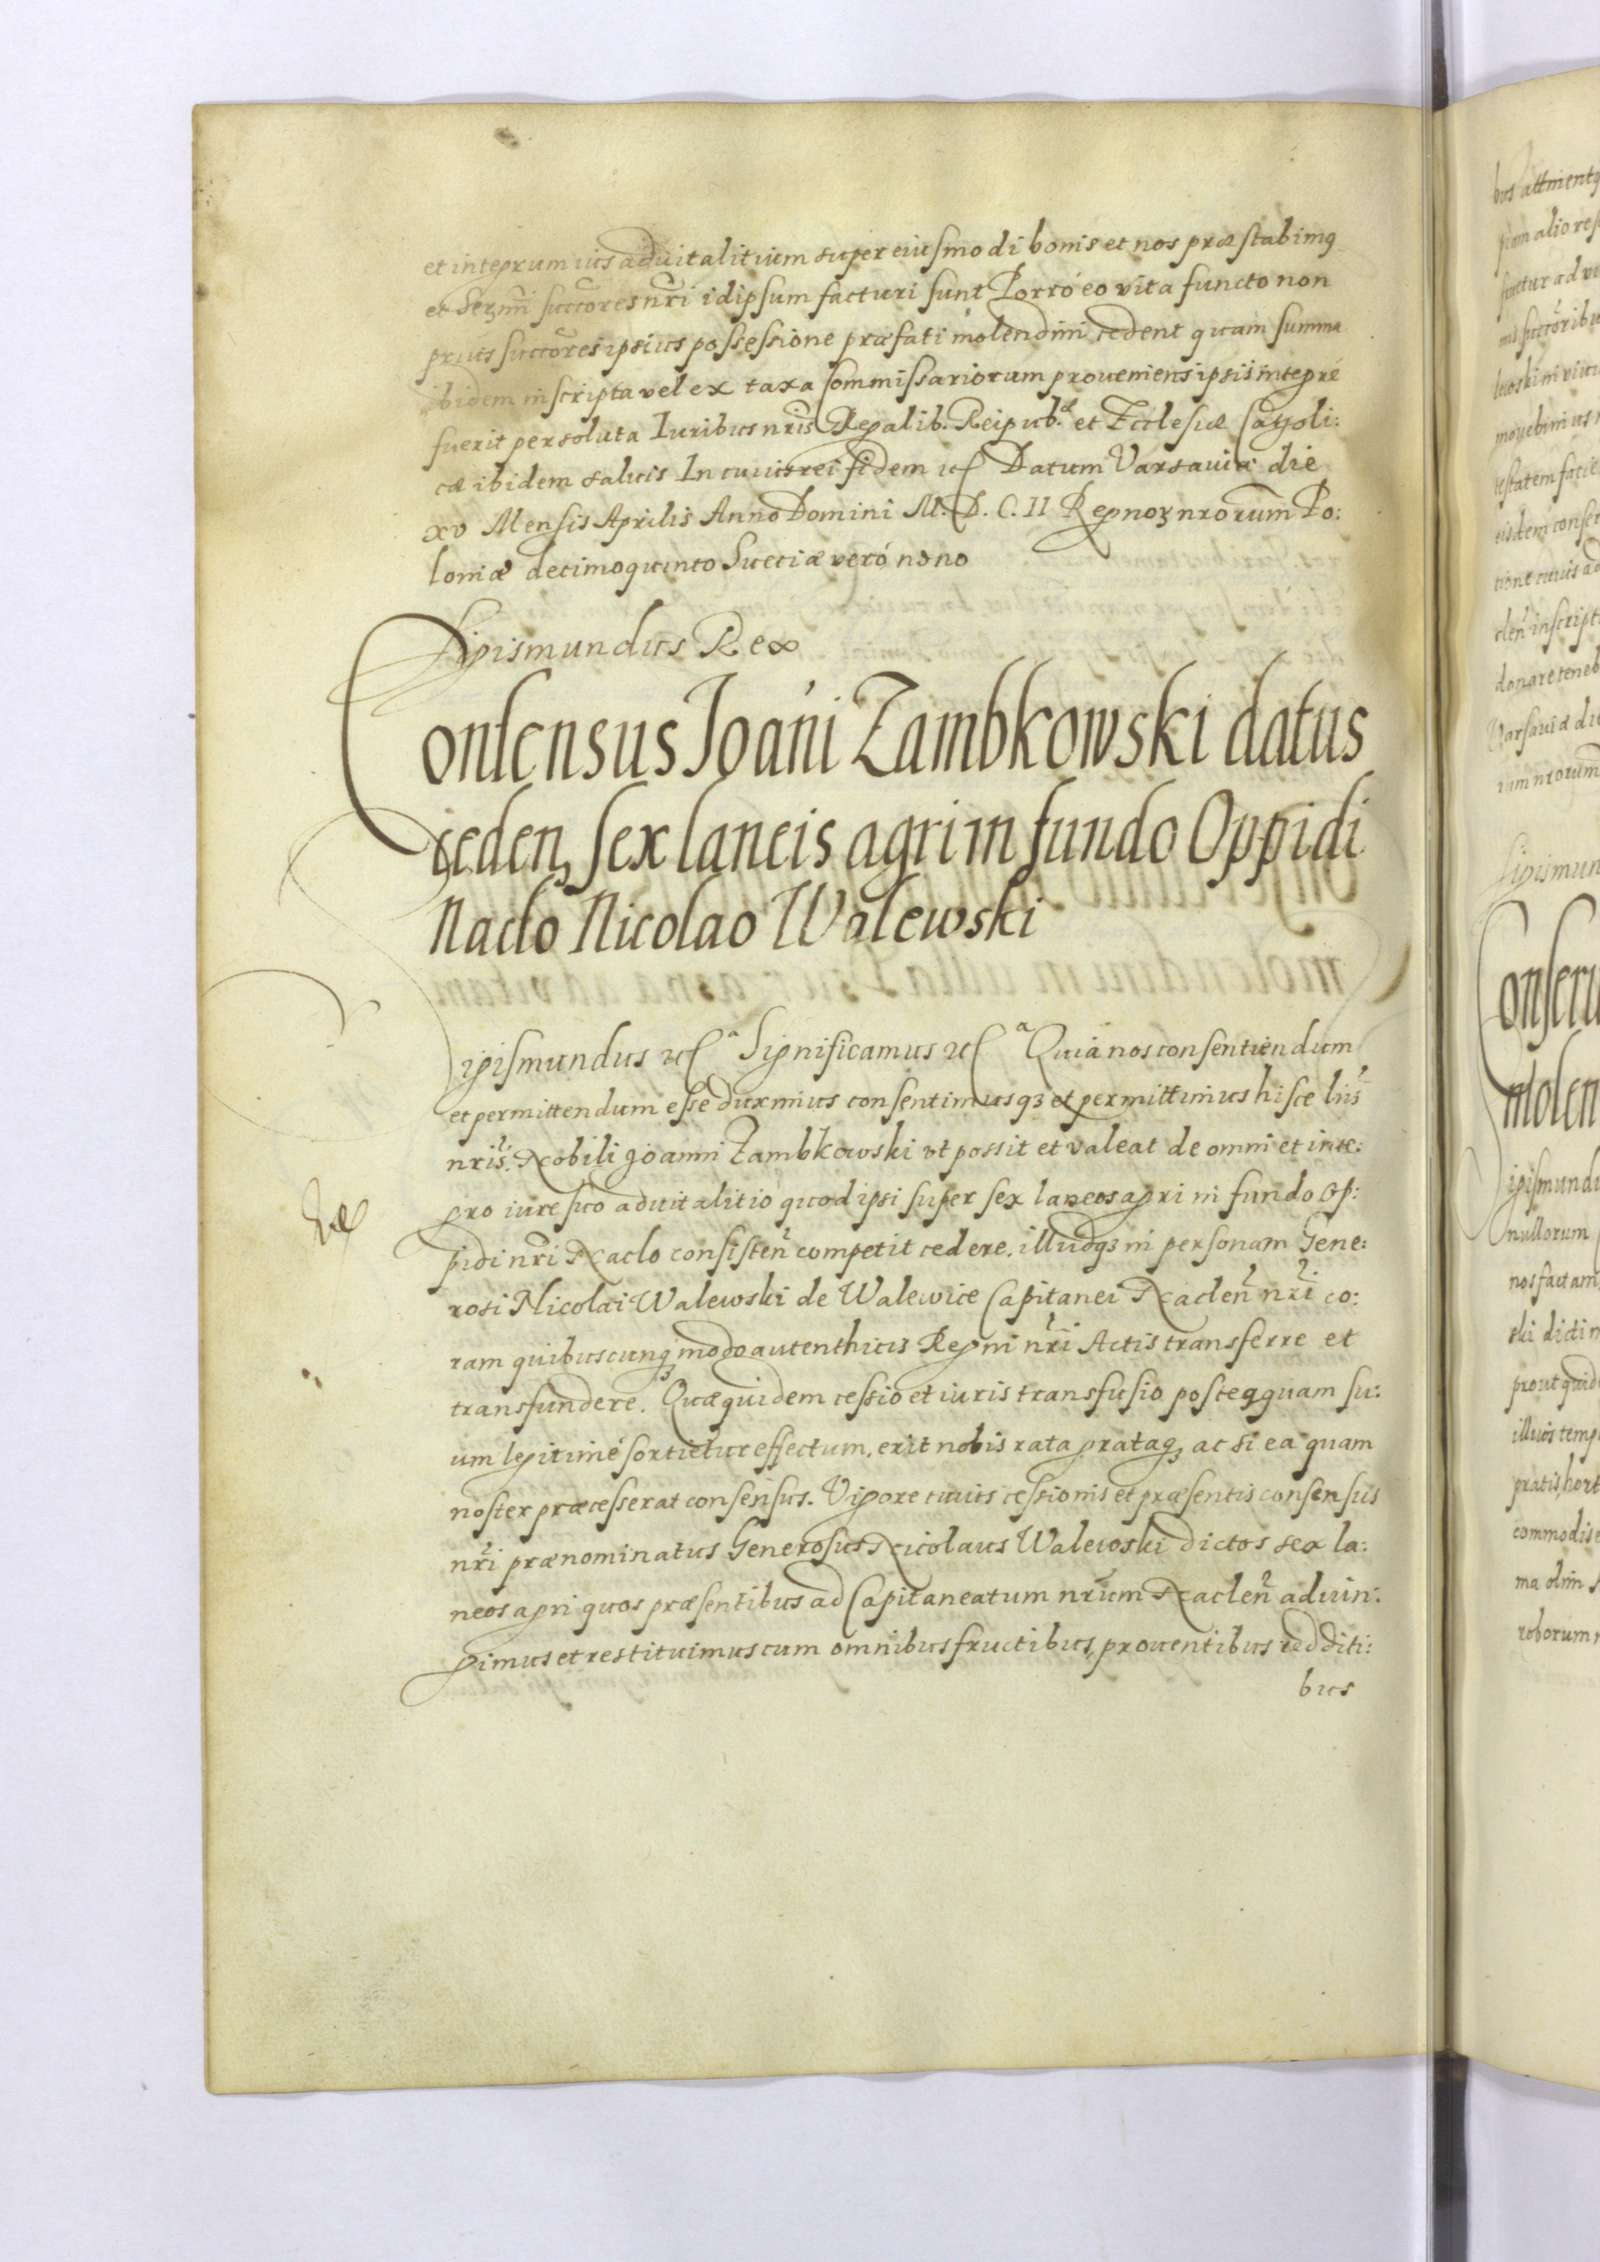 et integrum ius aduitalitium super eiusmodi bonis et nos præstabimq
et Serm̃i succcores nr̃i idipsum facturi sunt Porró eo vita functo non
prius succores ipsius possessione præfati molendini cedent quam summa
ibidem inscripta vel ex taxa Commissariorum proueniens ipsis integré
fuerit persoluta Iuribus nr̃is Regalib. Reipub. et Ecclesiæ Catholi:
cæ ibidem saluis In cuius rei fidem ꝛc Datum Varsauiæ die
xv Mensis Aprilis Anno Domini M. D. C. II Regnoꝝ nrorum Po:
loniæ decimoquinto Sueciæ veró nono
Sigismundus Rex
Consensus Joañi Zambkowski datus
cedenꝫ sex laneis agri in fundo Oppidi
Naclo Nicolao Walewski
Sigismundus ꝛc Significamus ꝛc Quia nos consentiendum
et permittendum esse duximus consentimusqꝫ et permittimus hisce lr̃is
nris. Nobili Joanni Zambkowski vt possit et valeat de omni et inte:
gro iure suo aduitalitio quod ipsi super sex laneos agri in fundo Op:
pidi nr̃i Naclo consisten̄ competit cedere. illudqꝫ in personam Gene:
rosi Nicolai Walewski de Walewice Capitanei Naclen̄ nr̃i co:
ram quibuscunqꝫ modo autenthicis Regni nr̃i Actis transferre et
transfundere. Quæquidem cessio et iuris transfusio posteaquam su:
um legitimé sortietur effectum. erit nobis rata grataqꝫ ac si ea quam
noster præcesserat consensus. Vigore cuius cessionis et præsentis consensus
nr̃i prænominatus Generosus Nicolaus Walewski dictos sex la:
neos agri quos præsentibus ad Capitaneatum nr̃um Naclen̄ adiun:
gimus et restituimus cum omnibus fructibus, prouentibus redditi:
bus